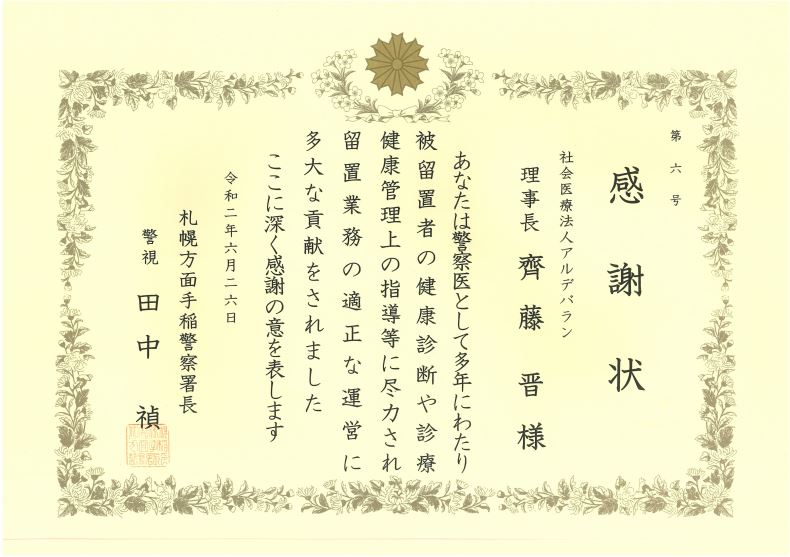 第六号
感謝状
社会医療法人アルデバラン
理事長 齊藤晋様
あなたは警察医として多年にわたり
被留置者の健康診断や診療
健康管理上の指導等に尽力され
留置業務の適正な運営に
多大な貢献をされました
ここに深く感謝の意を表します
令和二年六月二六日
札幌方面手稲警察署長
警視 田中禎